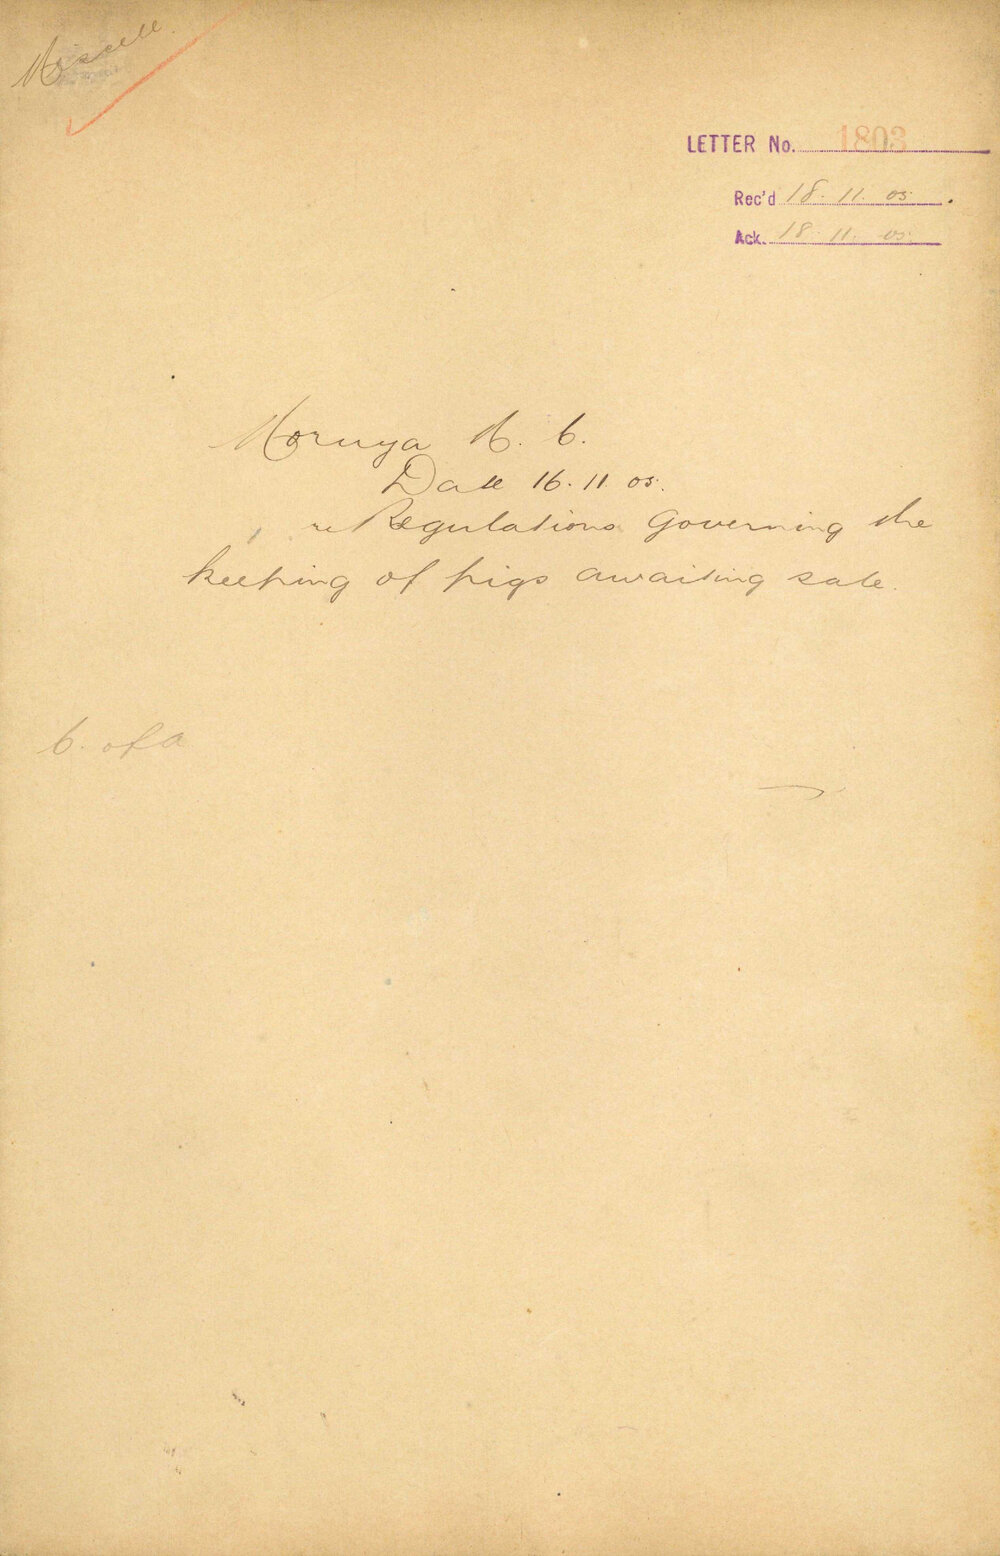 Miscell.
LETTER No. 1803
Rec'd 18. 11. 05.
Ack. 18. 11. 05.
Moruya M. C.
Date 16. 11. 05.
re Regulations governing the
keeping of pigs awaiting sale.
C. of A